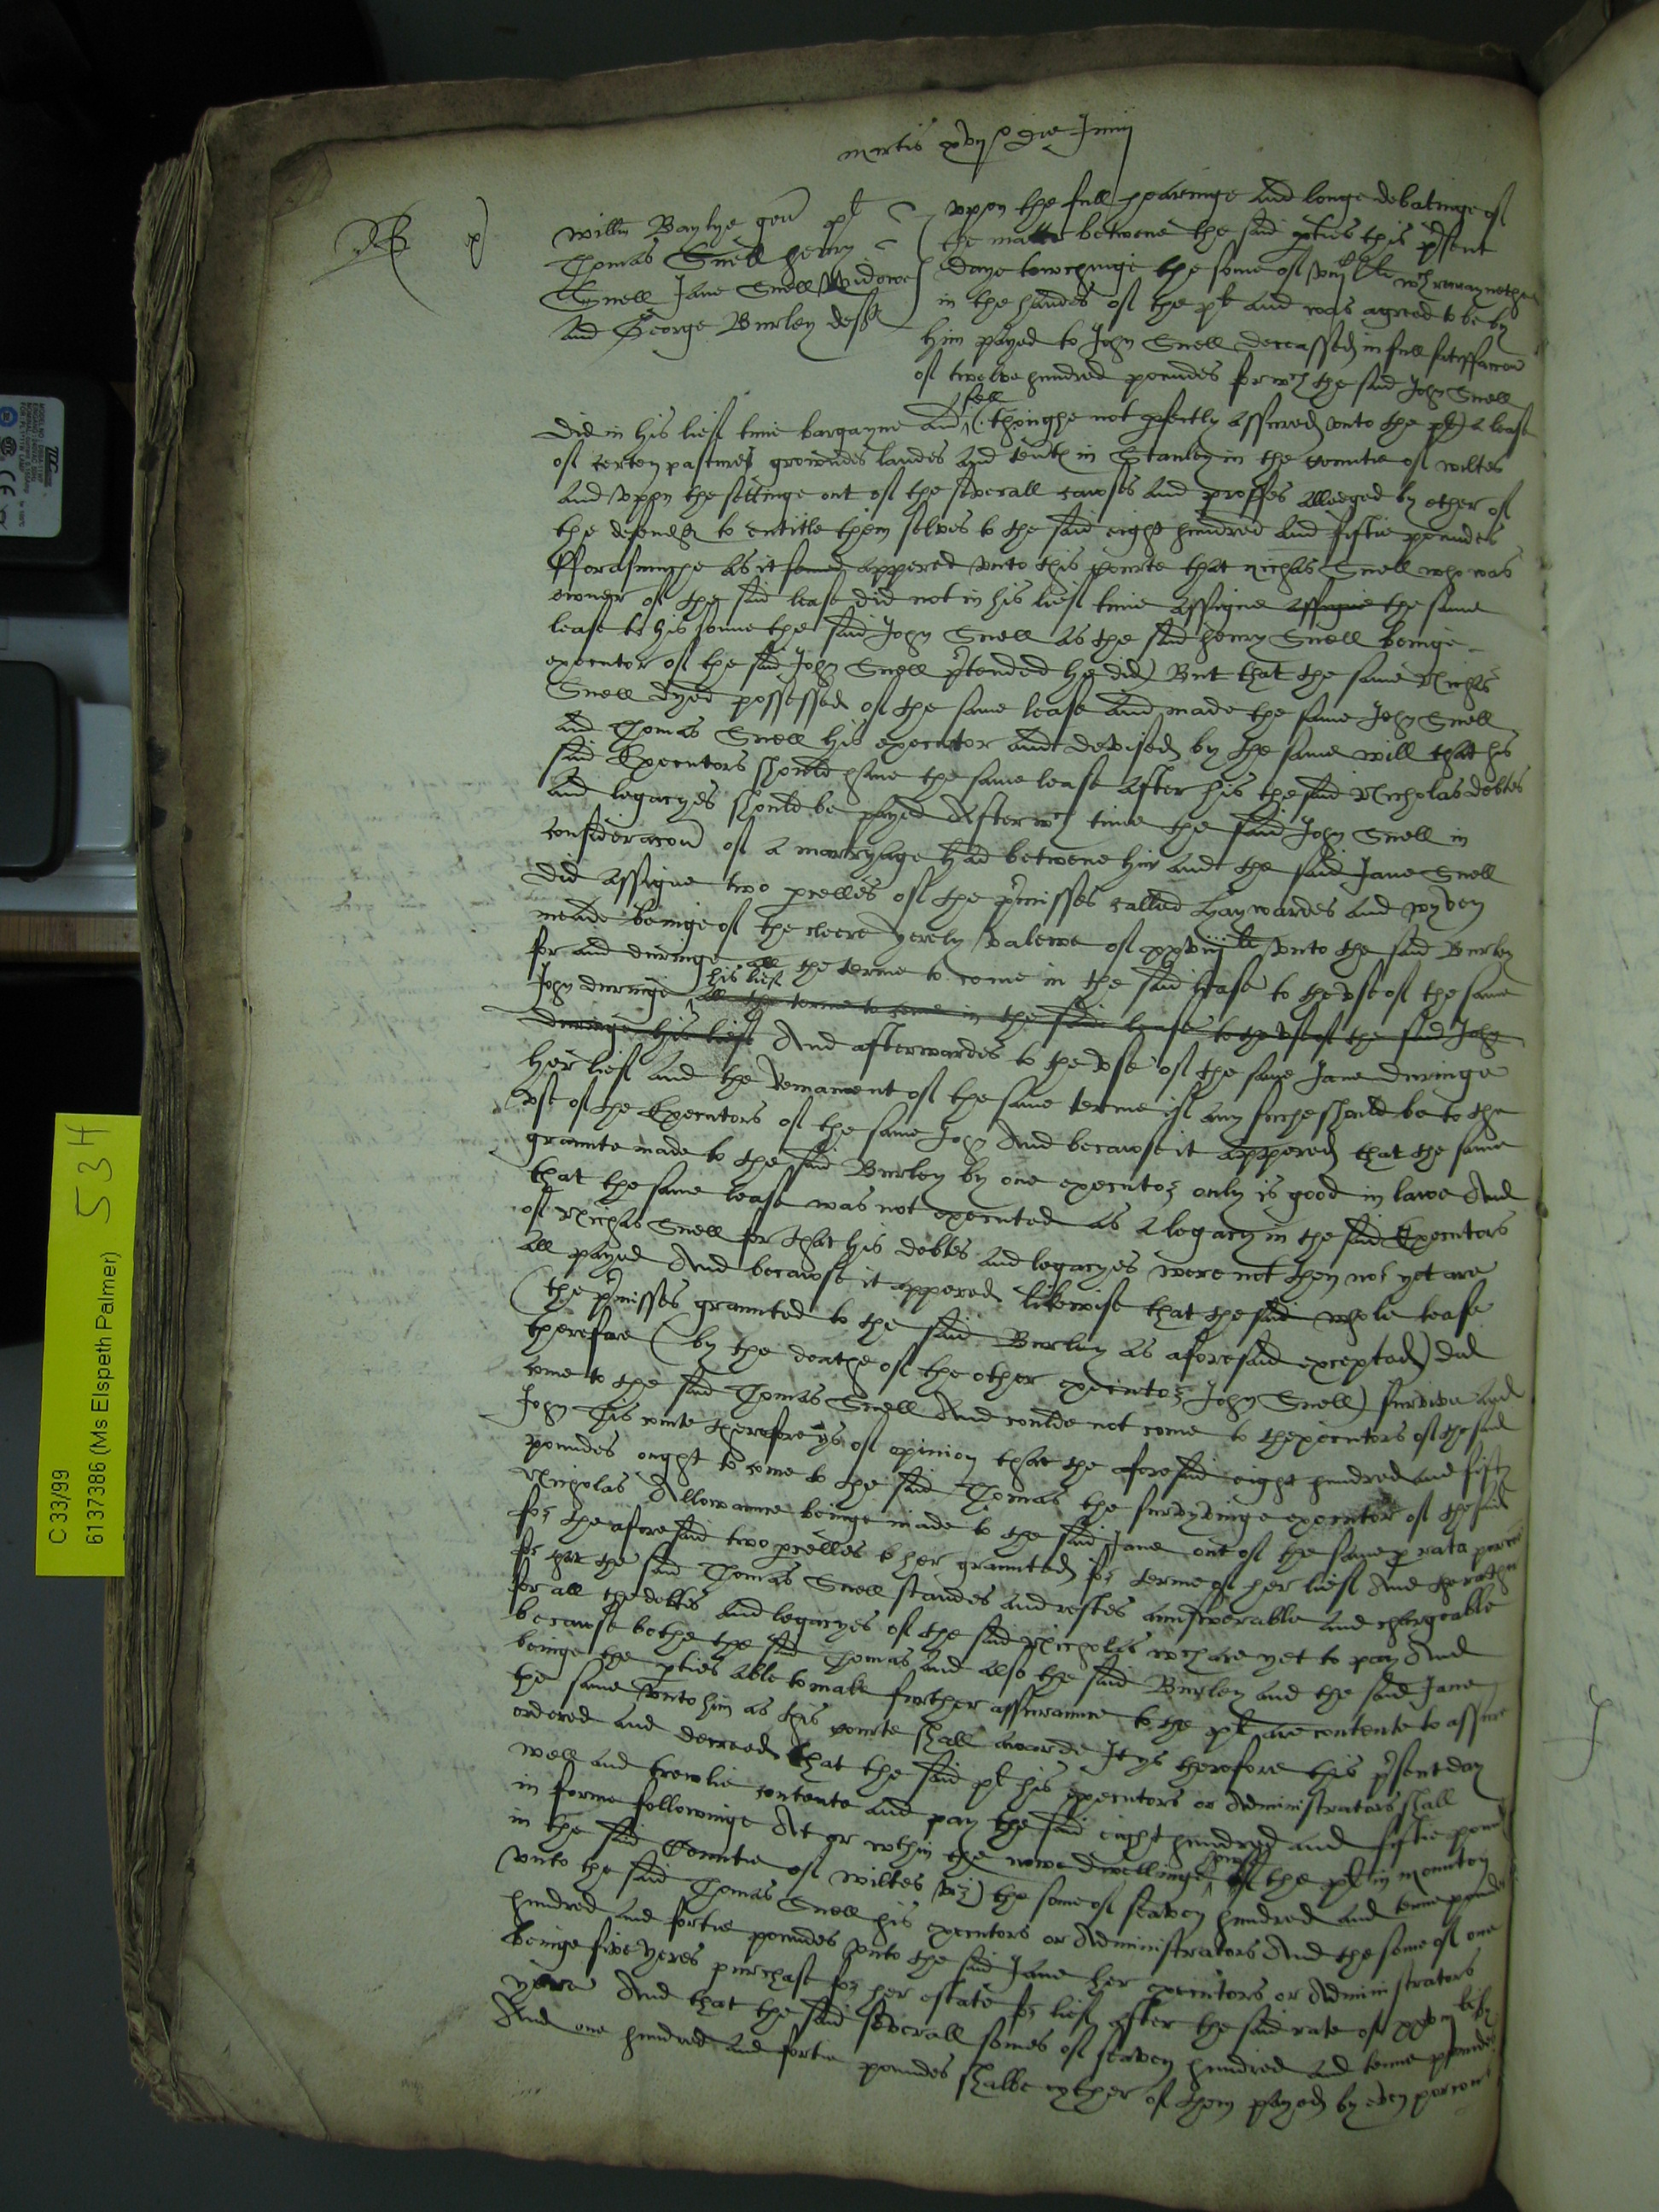 martis xvij° die Junij
willm Baylye gen pl
Thomas Snell henry
Snell Jane Snell Widowe
and George Burley defts
vpon the full hearinge and longe debatinge of
the matter betwene the said pties this p̃sent
daye towchinge the some of wch remaynethe
in the handes of the pl and was agreed to be by
him payed to John Snell deceassed in full satisfaccon
of twelve hundred poundes for wch the said John Snell
did in his lief time bargayne and sell (thoughe not pfectly assured vnto the pl) a lease
of certen pastures growndes landes and tents in Stanley in the countie of wiltes
and vppon the settinge out of the severall cawses and proffes alleaged by ether of
the defendts to entitle them selves to the said eight hundred and fiftie poundes
Fforasmuche as it semed appered vnto this courte that Nichas Snell who was
owner of the said lease did not in his lief time assigne assigne the same
lease to his sonne the said John Snell as the said henry Snell beinge
executor of the said John Snell p̃tended he did) But that the same Nichas
Snell dyed possessed of the same lease and made the same John Snell
and Thomas Snell his executor and devised by the same will that his
said Executors should have the same lease after his the said Nicholas debtes
and legacyes should be payed After wch time the said John Snell in
consideracon of a marryage had betwene him and the said Jane Snell
did assigne two pcelles of the p̃misses called haywardes and
meade beinge of the cleere yerely valewe of xxviij li vnto the said Burley
for and duringe all the terme to come in the said lease to the vse of the same
John duringe his lief all the terme to come in the said lease to the vse of the said John
duringe his lief And afterwardes to the vse of the same Jane duringe
her lief and the remanent of the same terme if any suche should be to the
vse of the Executors of the same John And because it appered that the same
graunte made to the said Burley by one executor only is good in lawe And
that the same lease was not executed as a legacy in the said Executors
of Nichas Snell for that his debtes and legacyes were not then nor yet are
all payed And because it appered likewise that the said whole lease
(the p̃misses graunted to the said Burley as aforesaid excepted) did
therefore (by the deathe of the other executor John Snell) survive and
come to the said Thomas Snell And coulde not come to thexecutors of the said
John This courte therefore ys of opinion that the aforesaid eight hundred and fifty
poundes ought to come to the said Thomas the survyvinge executor of the said
Nicholas Allowaunce beinge made to the said Jane out of the same p rata
for the aforesaid two pcelles to her graunted for terme of her lief And
for that the said Thomas Snell standes and restes aunswerable and chargeable
for all the debtes and legacyes of the said Nicholas wch are yet to pay And
because bothe the said Thomas and also the said Burley and the said Jane
beinge the pties able to make further assuraunce to the pl are contente to assure
the same vnto him as this courte shall awarde It ys therefore this p̃sent day
ordered and decreed that the said pl his executors or administrators shall
well and trewlie contente and pay the said eight hundred and fiftie pounds
in forme followinge At or wthin the nowe dwellinge howse of the pl in
in the said Countie of wiltes viz) the some of seaven hundred and tenne poundes
vnto the said Thomas Snell his executors or Administrators And the some of one
hundred and fortie poundes vnto the said Jane her executors or Administrators
beinge five yeres purchase for her estate for lief after the said rate of xxviij li by
yere And that the said severall somes of seaven hundred and tenne poundes
And one hundred and fortie poundes shalbe eyther of them payed by even porcons
C 33/99
6137386 (Ms Elspeth Palmer)
534